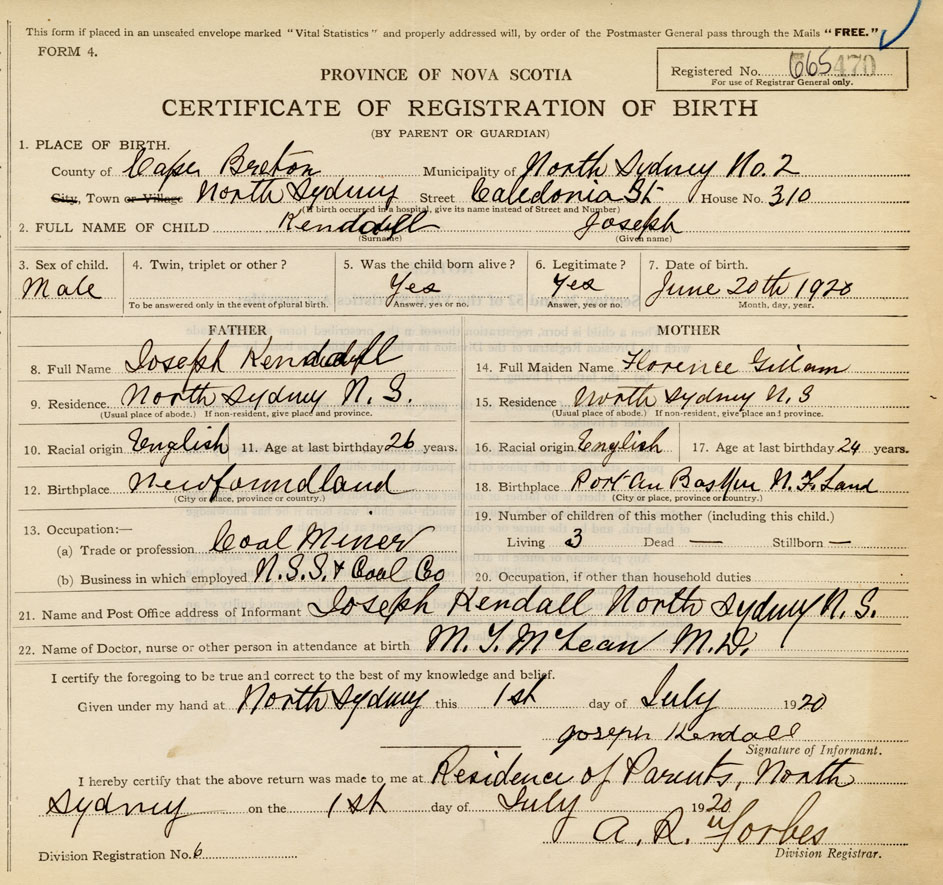 This form if placed in an unsealed envelope marked "Vital Statistics" and properly addressed will, by order of the Postmaster General pass through the Mails "FREE."
FORM 4.
Registered No. 665 470
For use of Registrar General only.
PROVINCE OF NOVA SCOTIA
CERTIFICATE OF REGISTRATION OF BIRTH
(BY PARENT OR GUARDIAN)
1. PLACE OF BIRTH.
County of Cape Breton Municipality of North Sydney No. 2
City, Town or Village North Sydney Street Caledonia St House No. 310
(If birth occurred in a hospital, give its name instead of Street and Number)
2. FULL NAME OF CHILD Kendall Joseph
(Surname) (Given name)
3. Sex of child. 4. Twin, triplet or other? 5. Was the child born alive? 6. Legitimate? 7. Date of birth.
Male Yes Yes June 20th 1920
To be answered only in the event of plural birth. Answer, yes or no. Answer, yes or no. Month, day, year.
FATHER MOTHER
8. Full Name Joseph Kendall 14. Full Maiden Name Florence Gillam
9. Residence. North Sydney N. S. 15. Residence North Sydney N. S
(Usual place of abode.) If non-resident, give place and province. (Usual place of abode.) If non-resident, give place and province.
10. Racial origin English 11. Age at last birthday 26 years. 16. Racial origin English 17. Age at last birthday 24 years.
12. Birthplace Newfoundland 18. Birthplace Port Au Basque N. F. Land
(City or place, province or country.) (City or place, province or country.)
13. Occupation:— 19. Number of children of this mother (including this child.)
(a) Trade or profession Coal Miner Living 3 Dead — Stillborn —
(b) Business in which employed N. S. S. & Coal Co 20. Occupation, if other than household duties
21. Name and Post Office address of Informant Joseph Kendall North Sydney N. S.
22. Name of Doctor, nurse or other person in attendance at birth M. T. McLean M. D.
I certify the foregoing to be true and correct to the best of my knowledge and belief.
Given under my hand at North Sydney this 1st day of July 1920
Joseph Kendall
Signature of Informant.
I hereby certify that the above return was made to me at Residence of Parents, North
Sydney on the 1st day of July 1920
A. R. Forbes
Division Registration No. 6 Division Registrar.